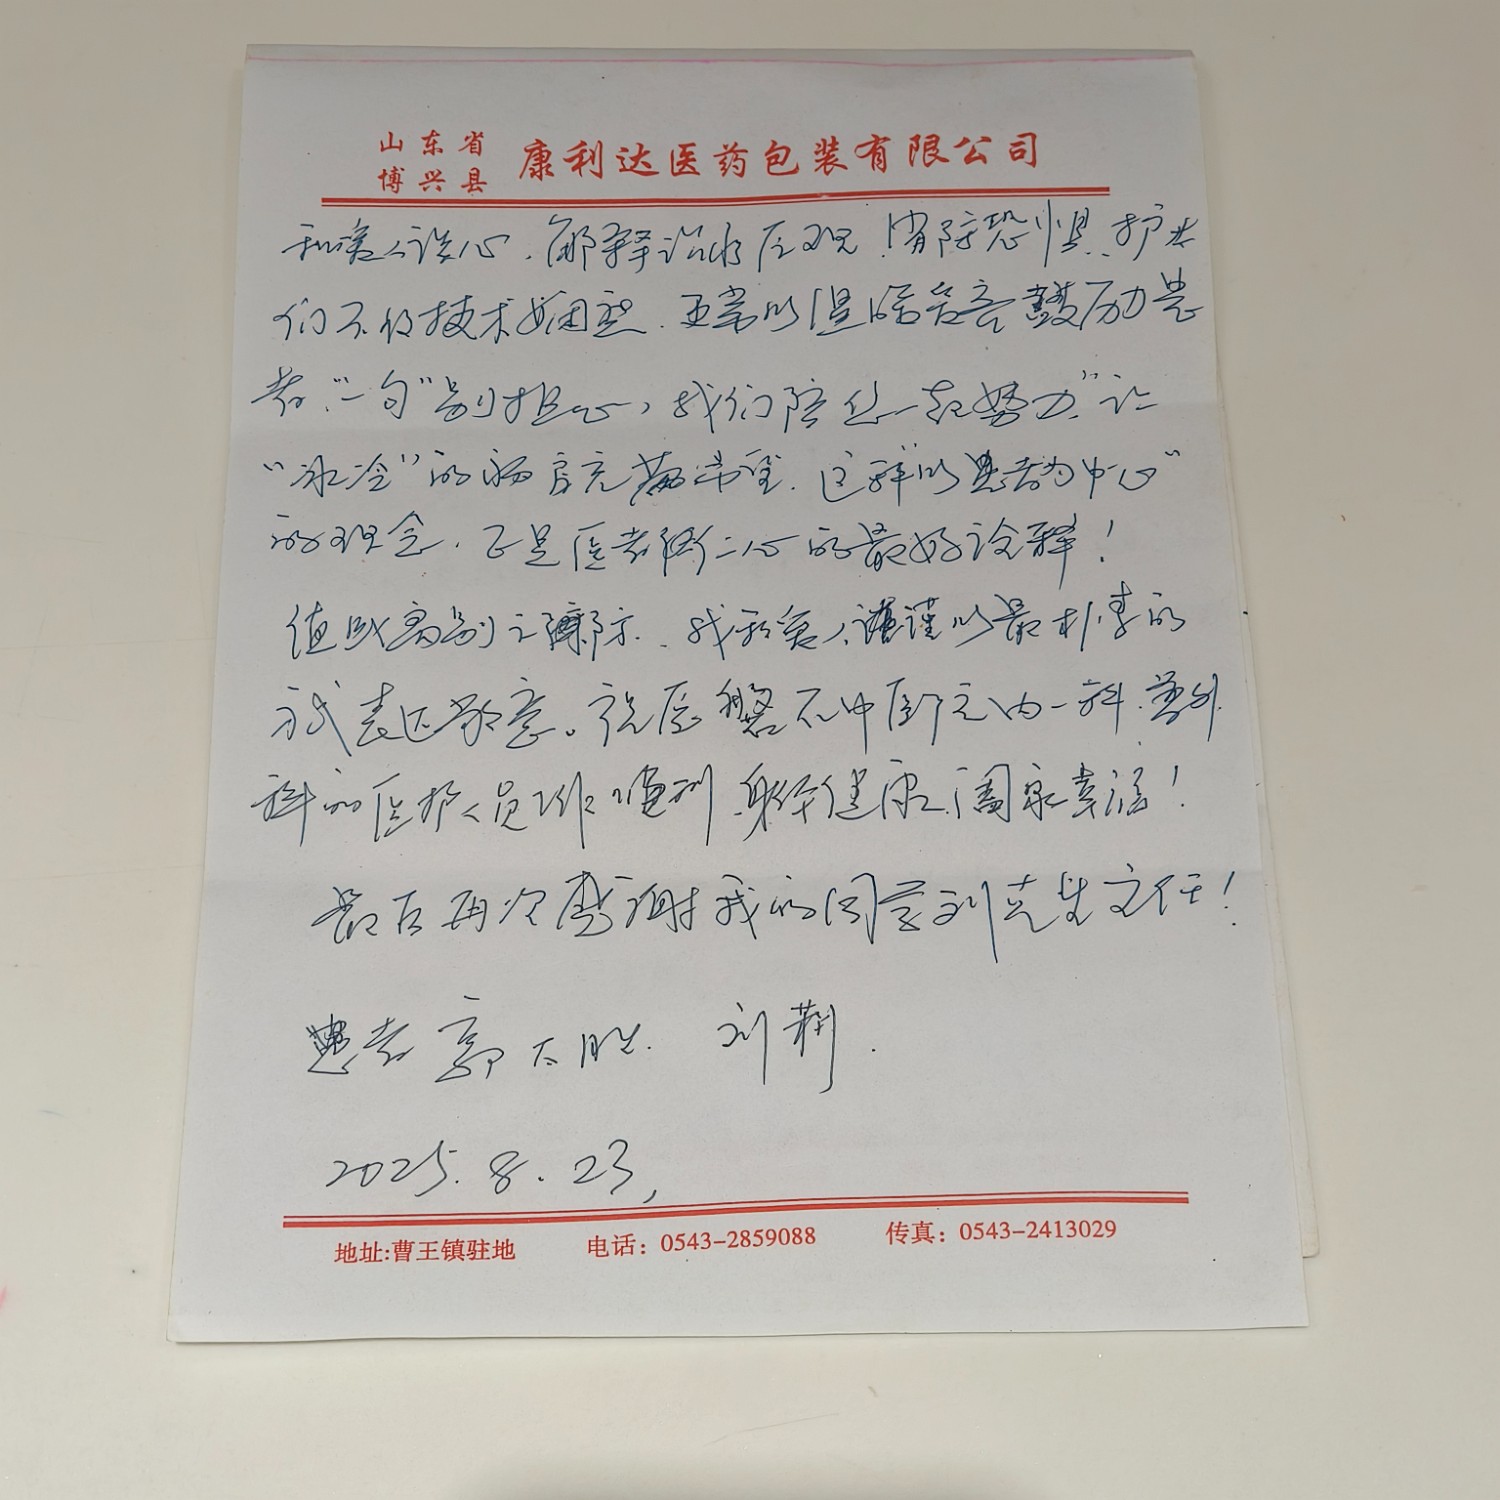 山东省
博兴县
康利达医药包装有限公司
和家人谈心,解释治疗原理,消除恐惧,护士
们不仅技术娴熟,更常以温暖笑言鼓励患
者,"一句"别担心,我们陪您一起努力"让
"冰冷"的病房充满希望.这样"以患者为中心"
的理念,正是医者仁心的最好诠释!
值此离别之际,我和家人谨以最朴素的
方式表达敬意。祝愿 中医院内一科、普外
科的医护人员工作顺利,身体健康,阖家幸福!
最后再次感谢我的同学刘 主任!
患者 郭 胜. 刘莉.
2025.8.23,
地址:曹王镇驻地 电话:0543-2859088 传真:0543-2413029